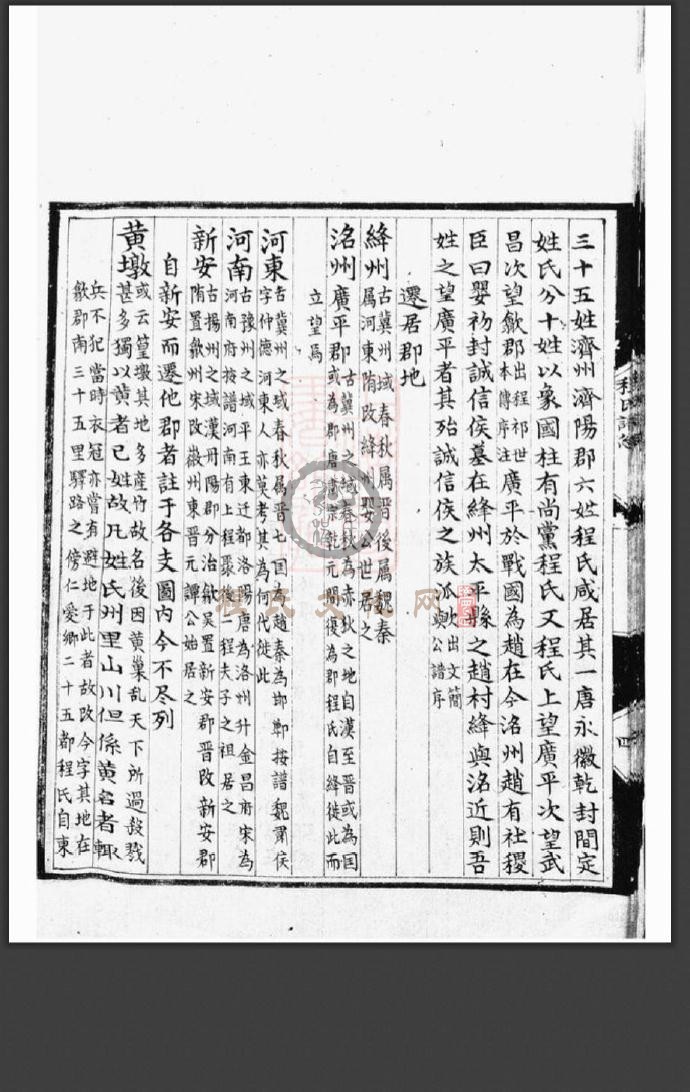 三十五姓濟州濟陽郡六姓程氏咸居其一唐永徽乾封間定
姓氏分十姓以象國柱有尚黨程氏又程氏上望廣平次望武
昌次望歙郡出程祁世
本傳序注
廣平於戰國為趙在今洺州趙有社稷
臣曰嬰初封誠信侯墓在絳州太平縣之趙村絳與洺近則吾
姓之望廣平者其殆誠信侯之族派歟出文簡
公譜序
遷居郡地
絳州古冀州域春秋属晋後属魏秦
属河東隋改絳州嬰公世居之
洺州廣平郡古冀州之域春秋為赤狄之地自漢至晋或為国
或為郡唐肅宗乾元間復為郡程氏自絳徙此而
立望焉
河東古冀州之域春秋属晋七国為趙秦為邯鄲按譜魏肅侯
字仲德河東人亦莫考其為何代徙此
河南古豫州之域平王東迁都洛陽唐為洛州升金昌府宋為
河南府按譜河南有上程聚後二程夫子之祖居之
新安古揚州之域漢丹陽郡分治歙吴置新安郡晋改新安郡
隋置歙州宋改徽州東晋元譚公始居之
自新安而遷他郡者註于各支圖内今不尽列
黄墩或云篁墩其地多産竹故名後因黄巢乱天下所過殺戮
甚多獨以黄者己姓故凡姓氏州里山川但係黄名者輒
兵不犯當時衣冠亦嘗有避地于此者故改今字其地在
歙郡南三十五里驛路之傍仁愛鄉二十五都程氏自東
程氏譜
四
程氏文献网